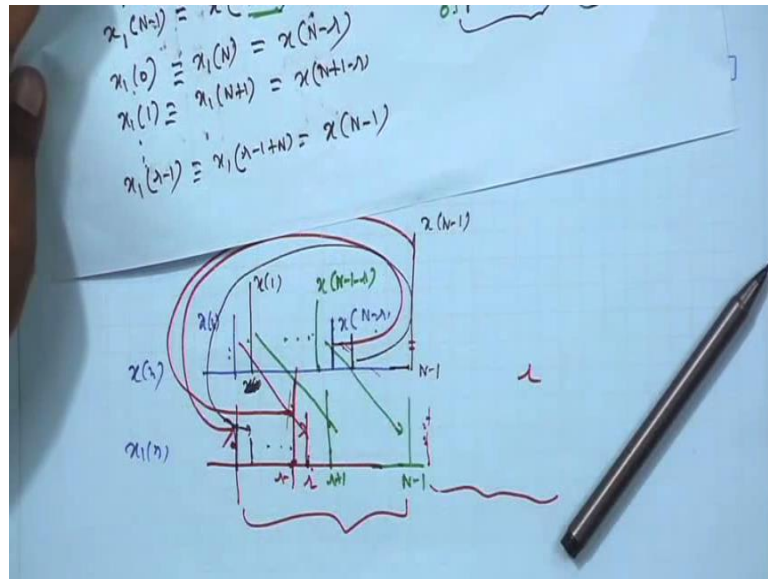 x₁(N-1) = x(
x₁(0) ≡ x₁(N) = x(N-r)
x₁(1) ≡ x₁(N+1) = x(N+1-r)
x₁(r-1) ≡ x₁(r-1+N) = x(N-1)
x(N-1)
x(1) x(N-1-r)
x(N-r)
x(n) N-1 r
x₁(n)
r-1 r r+1 N-1